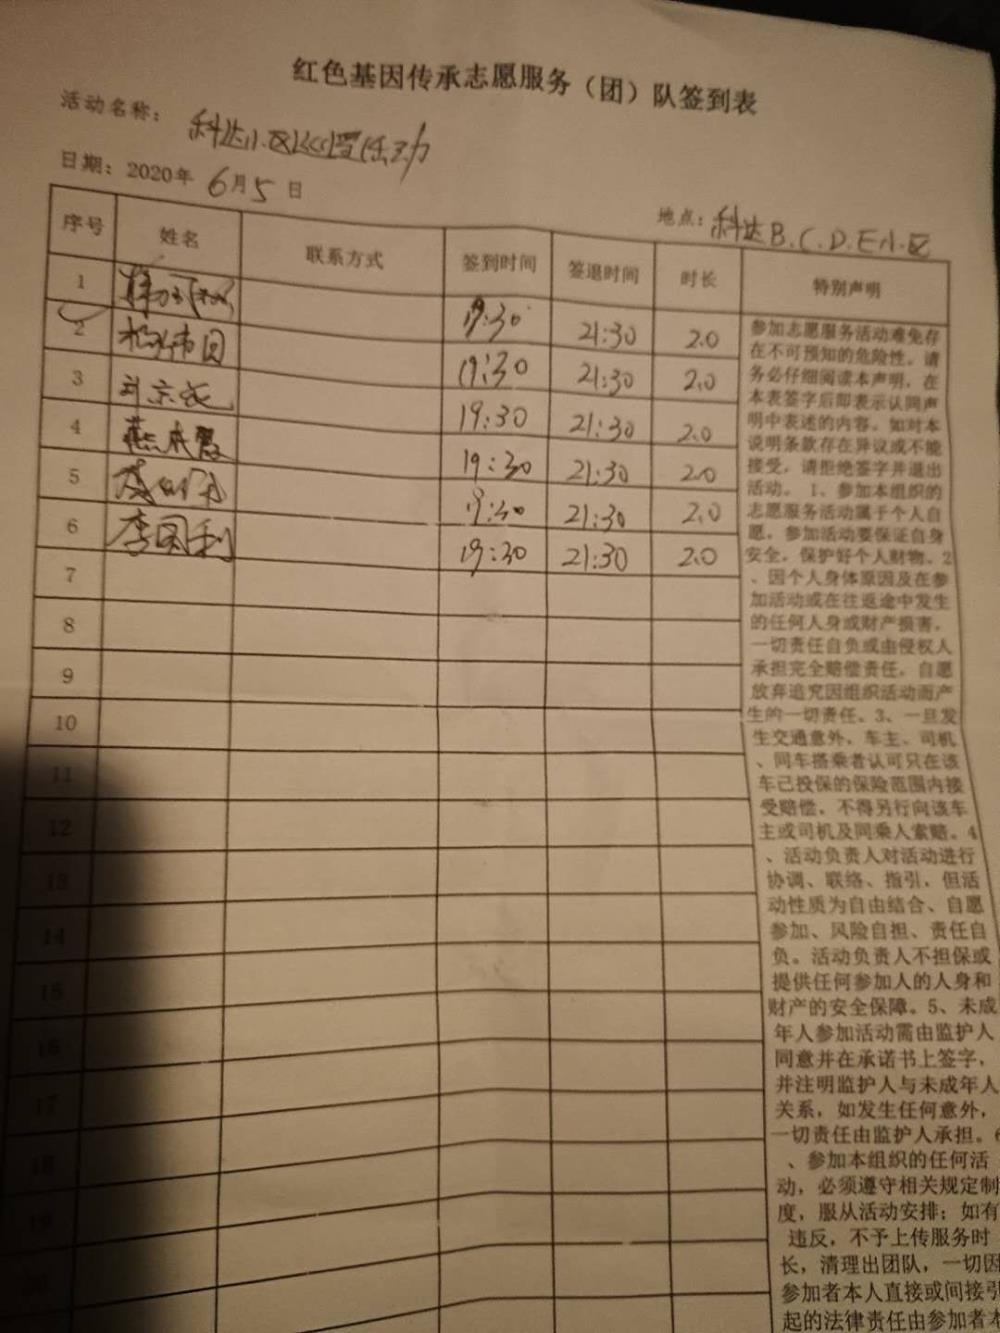 红色基因传承志愿服务（团）队签到表
活动名称：
日期：2020年 6月5日
地点：科达B.C.D.E小区
序号 姓名 联系方式 签到时间 签退时间 时长 特别声明
1 19:30 21:30 2.0
2 19:30 21:30 2.0
3 19:30 21:30 2.0
4 19:30 21:30 2.0
5 19:30 21:30 2.0
6 李国利 19:30 21:30 2.0
7
8
9
10
11
12
13
14
15
16
17
18
19
参加志愿服务活动难免存
在不可预知的危险性。请
务必仔细阅读本声明，在
本表签字后即表示认同声
明中表述的内容。如对本
说明条款存在异议或不能
接受，请拒绝签字并退出
活动。 1、参加本组织的
志愿服务活动属于个人自
愿，参加活动要保证自身
安全，保护好个人财物。2
、因个人身体原因及在参
加活动或在往返途中发生
的任何人身或财产损害，
一切责任自负或由侵权人
承担完全赔偿责任，自愿
放弃追究因组织活动而产
生的一切责任。3、一旦发
生交通意外，车主、司机
、同车搭乘者认可只在该
车已投保的保险范围内接
受赔偿，不得另行向该车
主或司机及同乘人索赔。4
、活动负责人对活动进行
协调、联络、指引，但活
动性质为自由结合、自愿
参加、风险自担、责任自
负。活动负责人不担保或
提供任何参加人的人身和
财产的安全保障。5、未成
年人参加活动需由监护人
同意并在承诺书上签字，
并注明监护人与未成年人
关系，如发生任何意外，
一切责任由监护人承担。6
、参加本组织的任何活
动，必须遵守相关规定制
度，服从活动安排；如有
违反，不予上传服务时
长，清理出团队，一切因
参加者本人直接或间接引
起的法律责任由参加者本